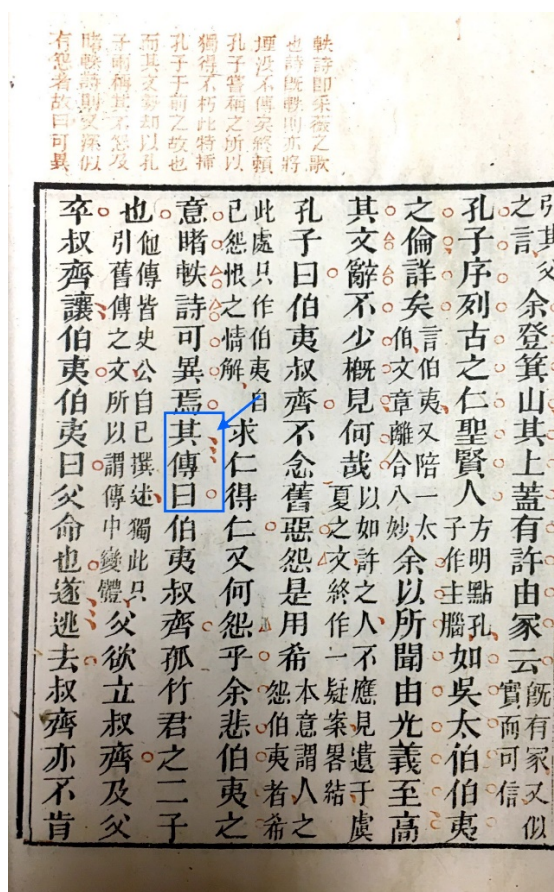 軼詩即采薇之歌
也詩既軼則亦將
堙没不傳矣終賴
孔子嘗稱之所以
獨得不朽此特揷
孔子于前之故也
而其文勢却以孔
子兩稱其不怨及
睹軼詩則又深似
有怨者故曰可異
引其文之言余登箕山其上蓋有許由冢云既有冢又似實而可信
孔子序列古之仁聖賢人方明點孔子作主腦如吳太伯伯夷
之倫詳矣言伯夷又陪一太伯文章離合入妙余以所聞由光義至高
其文辭不少概見何哉以如許之人不應見遺于虞夏之文終作一疑案畧結
孔子曰伯夷叔齊不念舊惡怨是用希本意謂人之怨伯夷者希
此處只作伯夷自己怨恨之情解求仁得仁又何怨乎余悲伯夷之
意睹軼詩可異焉其傳曰伯夷叔齊孤竹君之二子
也他傳皆史公自己撰述獨此只引舊傳之文所以謂傳中變體父欲立叔齊及父
卒叔齊讓伯夷伯夷曰父命也遂逃去叔齊亦不肯